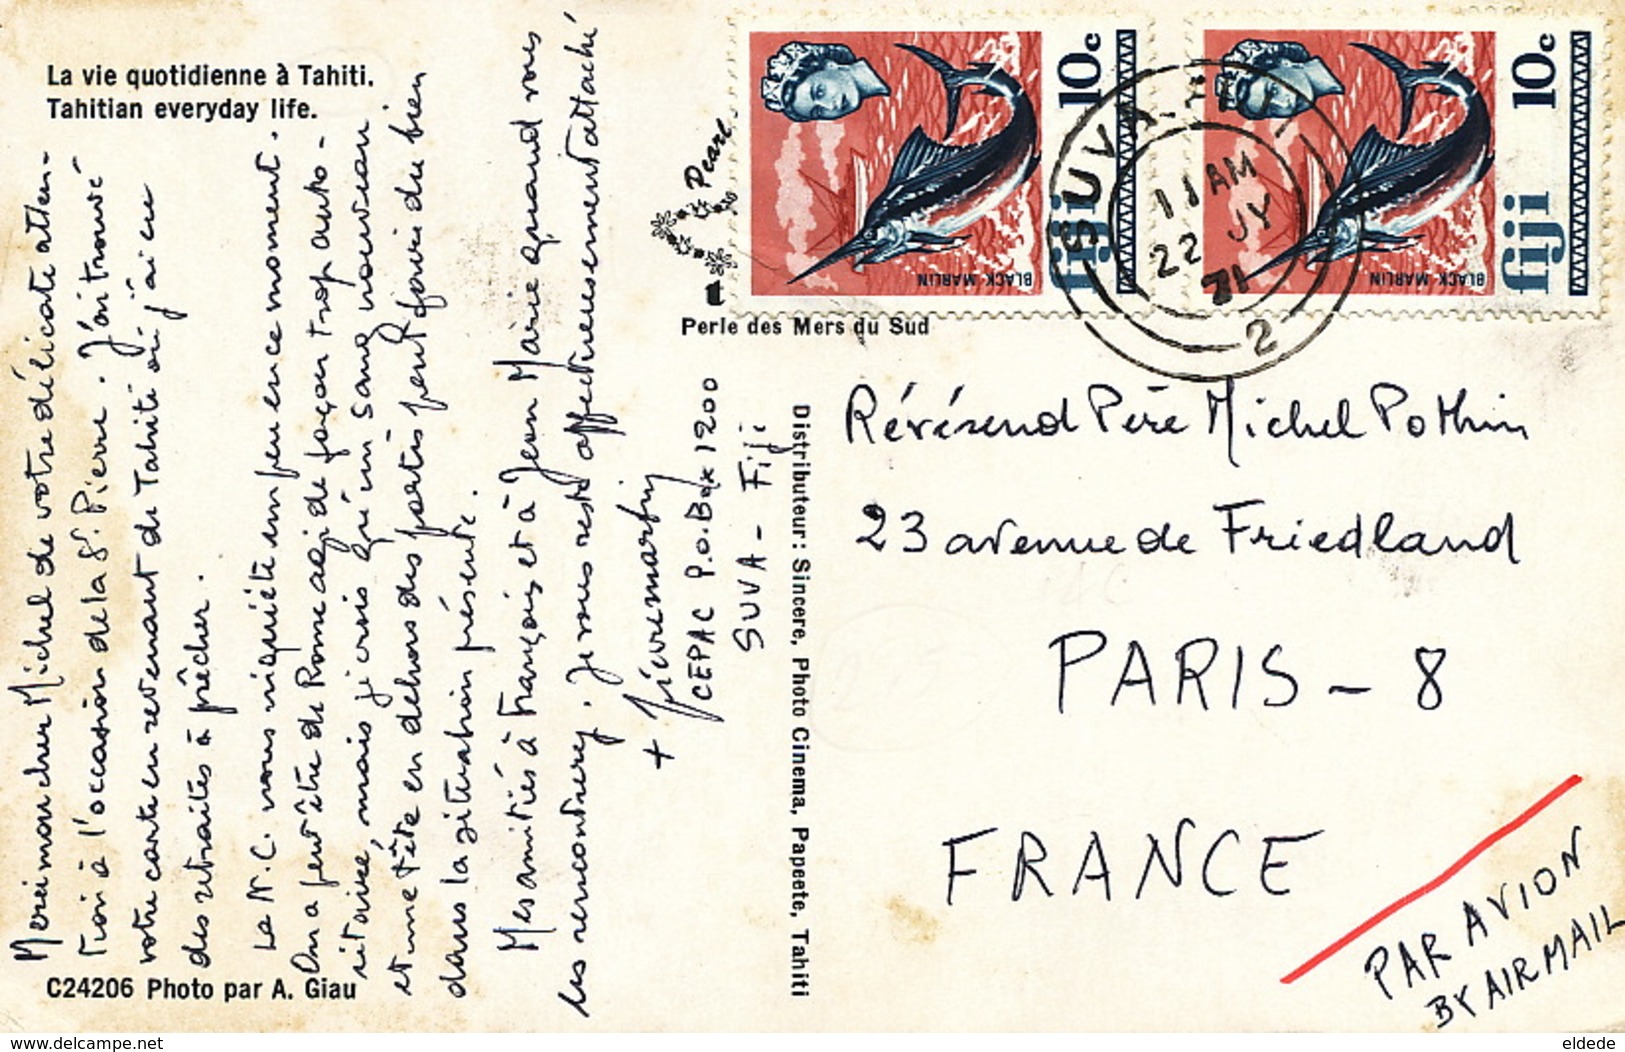 La vie quotidienne à Tahiti.
Tahitian everyday life.
Merci mon cher Michel de votre délicate atten-
tion à l'occasion de la St. Pierre. J'ai trouvé
votre carte en revenant de Tahiti où j'ai eu
des retraites à prêcher.
La N.C. vous inquiète un peu en ce moment.
On a peut être de Rome agi de façon trop auto-
ritaire, mais je crois qu'un sang nouveau
et une tête en dehors des partis peut faire du bien
dans la situation présente.
Mes amitiés à François et à Jean Marie quand vous
les rencontrerez. Je vous reste affectueusement attaché
+
CEPAC P.O. Box 1200
SUVA - Fiji
C24206 Photo par A. Giau
Pearl
Perle des Mers du Sud
Distributeur: Sincere, Photo Cinema, Papeete, Tahiti
10c
fiji
BLACK MARLIN
10c
fiji
BLACK MARLIN
SUVA. FIJI
11 AM
22 JY
71
2
Révérend Père Michel Pothin
23 avenue de Friedland
PARIS - 8
FRANCE
PAR AVION
BY AIR MAIL
delcampe.net
eldede